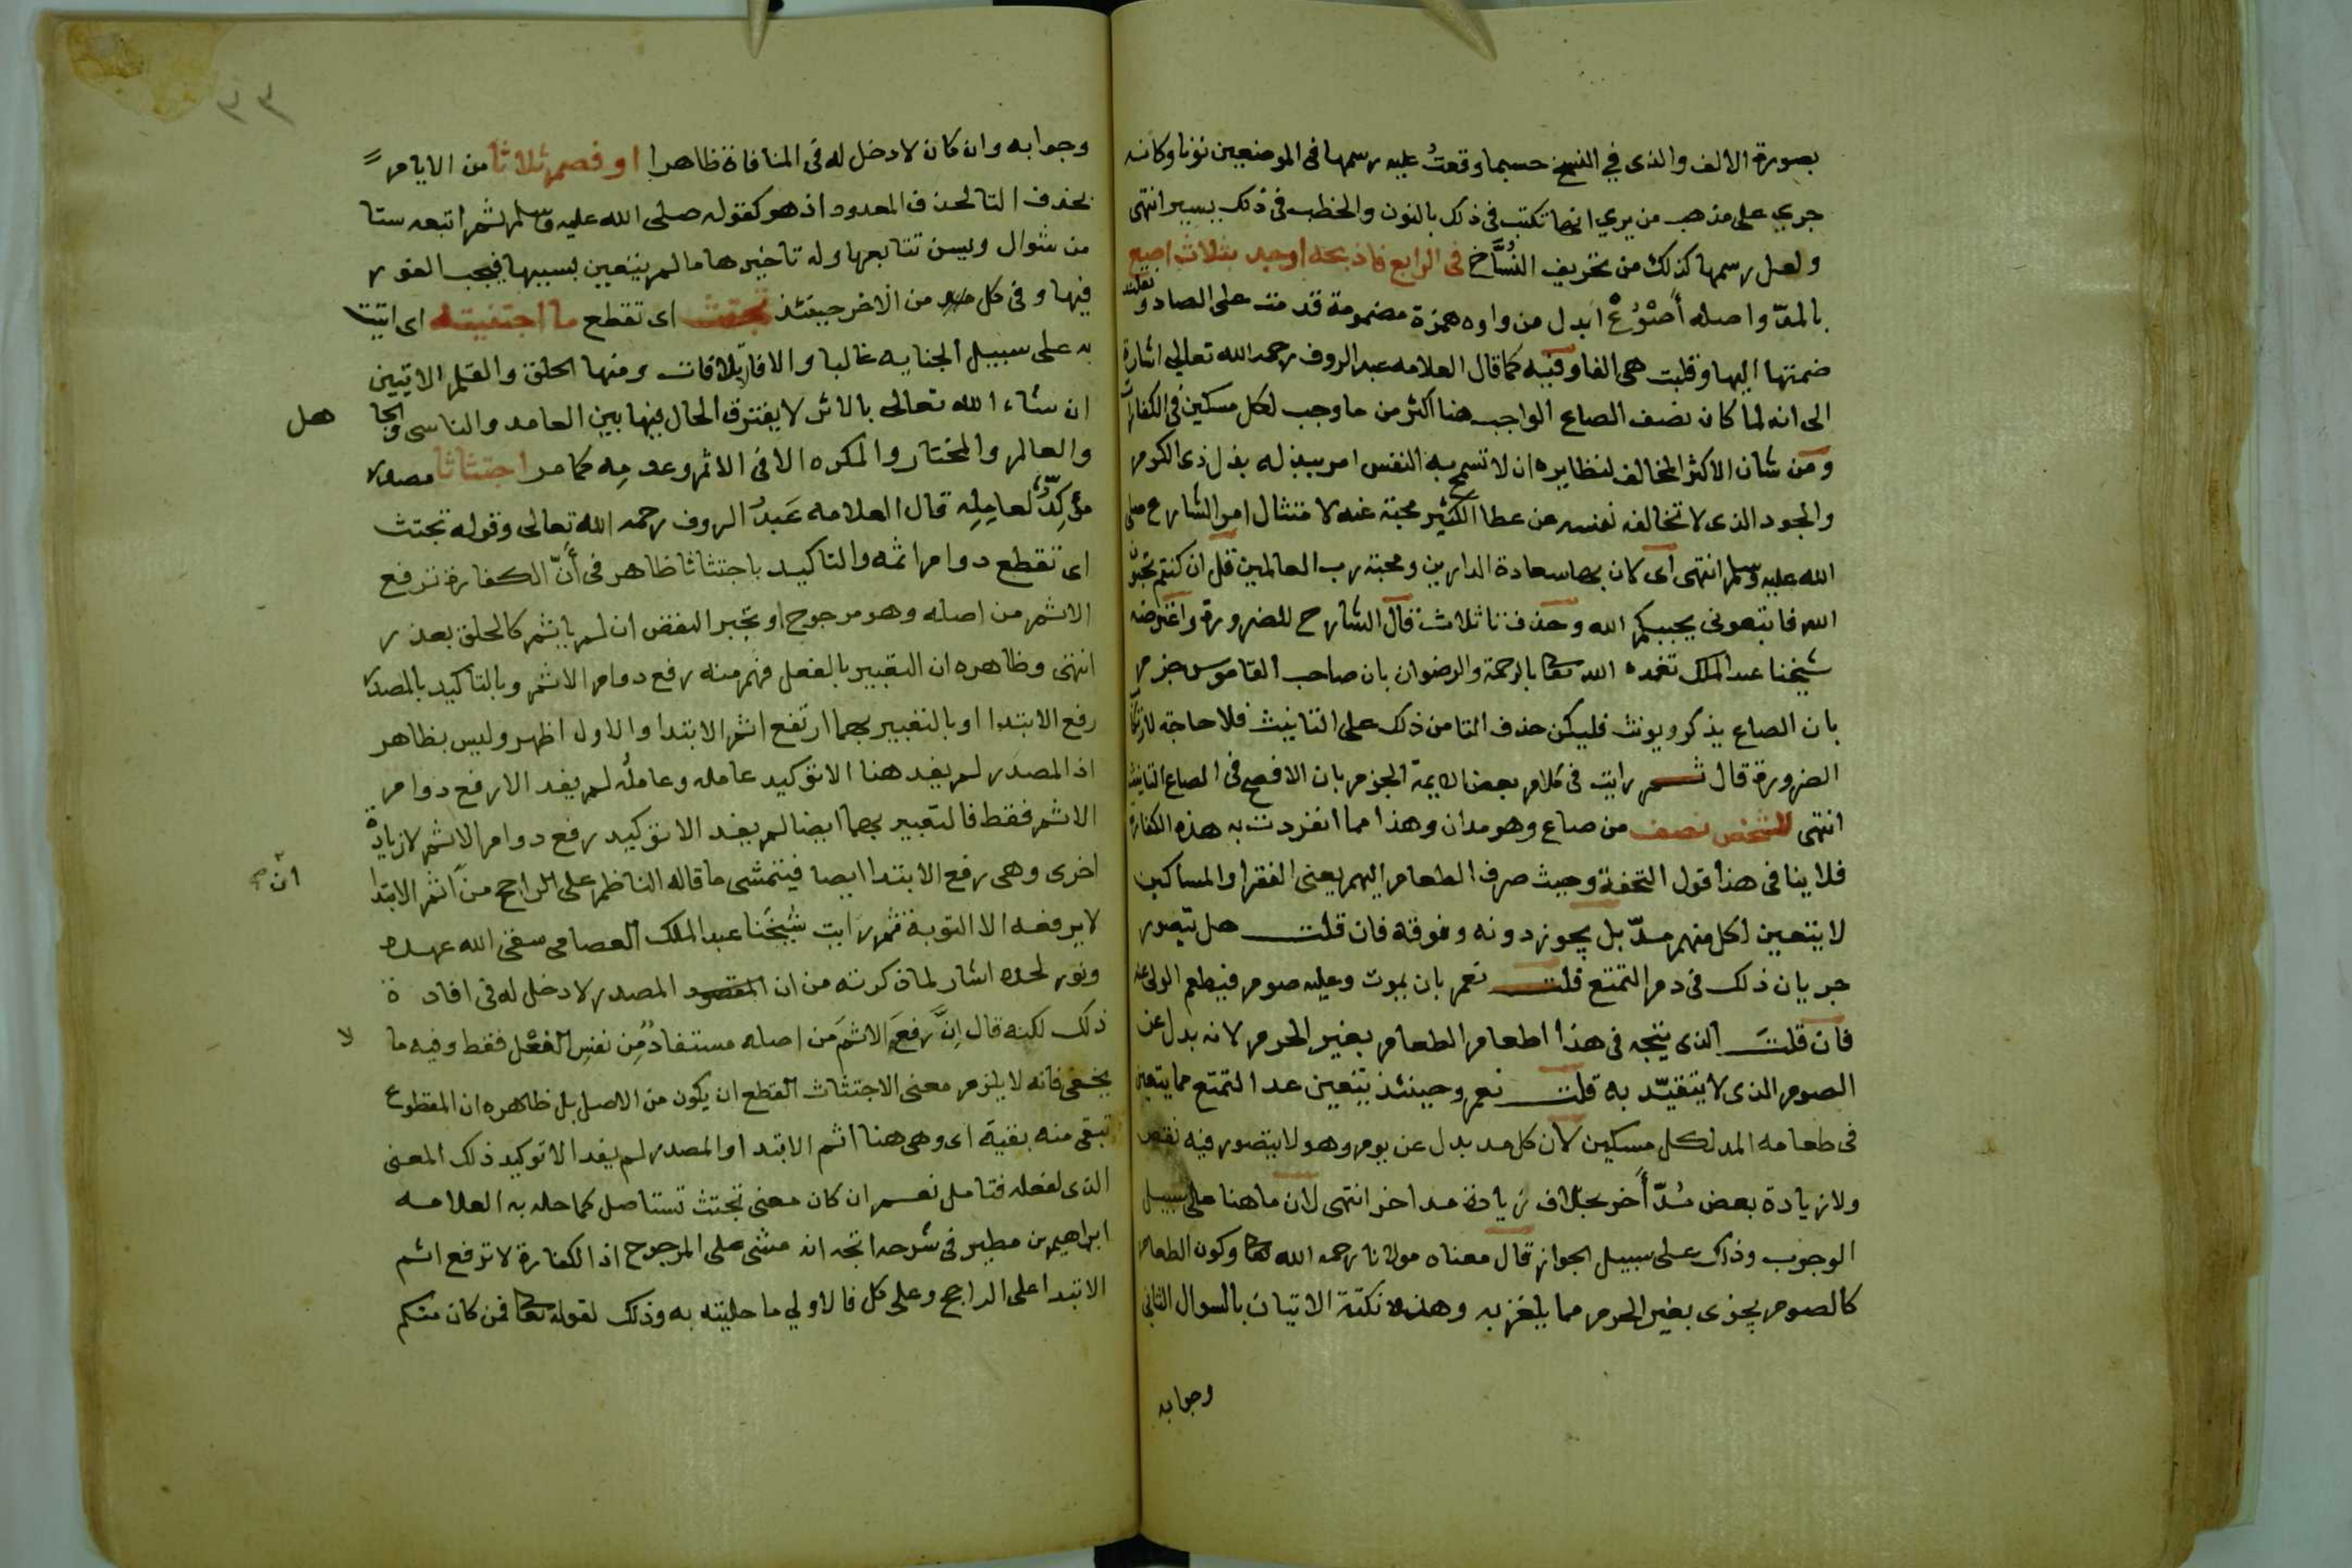 بصورة الالف والذى في النسخ حسبما وقعتُ عليه رسمها فى الموضعين نونا وكانه
جري على مذهب من يري انها تكتب فى ذلك بالنون والخطب فى ذلك يسير انتهى
ولعل رسمها كذلك من تحريف النُسَّاخ فى الرابع فاذبحه اوجد بثلاث اصع
بالمدّ واصله أَصْوُعْ ابدل من واوه همزة مضمومة قدمت على الصاد ونقلت
ضمتها اليها وقلبت هى الفا وفيه كما قال العلامه عبد الروف رحمه الله تعالى اشارة
الى انه لما كان نصف الصاع الواجب هنا اكثر من ما وجب لكل مسكين فى الكفارات
ومن شان الاكثر المخالف لنظايره ان لا تسمح به النفس امر ببذله بذل ذى الكرم
والجود الذى لا تخالفه نفسه عن عطا الكثير محبة غنه لامتثال امر الشارع صلى
الله عليه وسلم انتهى اى كان بها سعادة الدارين ومحبة رب العالمين قل ان كنتم تحبون
الله فاتبعونى يحببكم الله وحذف تا ثلاث قال الشارح للضرورة واعترضه
شيخنا عبد الملك تغمده الله تعا بالرحمة والرضوان بان صاحب القاموس جزم
بان الصاع يذكر ويونث فليكن حذف التا من ذلك على التانيث فلا حاجة لارتكاب
الضرورة قال ثم رايت فى كلام بعض الايمة الجزم بان الافصح فى الصاع التانيث
انتهى للشخص نصف من صاع وهو مدان وهذا مما انفردت به هذه الكفارة
فلا ينافى هذا قول التحفة وحيث صرف الطعام اليهم يعنى الفقرا والمساكين
لا يتعين لكل منهم مدّ بل يجوز دونه وفوقه فان قلت هل يتصور
جريان ذلك فى دم التمتع قلت نعم بان يموت وعليه صوم فيطعم الولى عنه
فان قلت الذى يتجه فى هذا اطعام الطعام بغير الحرم لانه بدل عن
الصوم الذى لا يتقيّد به قلت نعم وحينئذ يتعين عد التمتع مما يتعين
فى طعامه المد لكل مسكين لان كل مد بدل عن يوم وهو لا يتصور فيه نقص
ولا زيادة بعض مُدّ أخر بخلاف زيادة مد اخر انتهى لان ما هنا على سبيل
الوجوب وذلك على سبيل الجواز قال معناه مولانا رحمه الله تعا وكون الطعام
كالصوم يجزى بغير الحرم مما يلغز به وهذه نكتة الاتيان بالسوال الثانى
وجوابه
٣٣
وجوابه وان كان لا دخل له فى المنافاة ظاهرا او فصم ثلاثا من الايام
بحذف التا لحذف المعدود اذ هو كقوله صلى الله عليه وسلم ثم اتبعه ستا
من شوال ويسن تتابعها وله تاخيرها ما لم يتعين بسببها فيجب الفور
فيها وفى كل من الاخر حينئذ تجتث اى تقطع ما اجتنيته اى اتيت
به على سبيل الجنايه غالبا والا فان بلا فات ومنها الحلق والقلم الاتيين
ان شاء الله تعالى بالاثر لا يفترق الحال فيها بين العامد والناسى والجا
هل
والعالم والمختار والمكره الا فى الاثم وعدمِه كما مر اجتثاثا مصدر
مؤكِدٌ لعامِلِه قال العلامه عَبدُ الروف رحمه الله تعالى وقوله تجتث
اى تقطع دوام اثمه والتاكيد باجتثاثا ظاهر فى أَنّ الكفارة ترفع
الاثم من اصله وهو مرجوح او تجبر النقص ان لم ياثم كالحلق بعذر
انتهى وظاهره ان التعبير بالفعل فهم منه رفع دوام الاثم وبالتاكيد بالمصدر
رفع الابتدا او بالتعبير بهما ارتفع اثم الابتدا والاول اظهر وليس بظاهر
اذ المصدر لم يفد هنا الا توكيد عامله وعاملُه لم يفد الا رفع دوام
الاثم فقط فالتعبير بهما ايضا لم يفد الا توكيد رفع دوام الاثم لا زيادة
اخرى وهى رفع الابتدا ايضا فيتمشى ما قاله الناظم على الراجح من اثم الابتدا
انّ صح
لا يرفعه الا التوبة ثم رايت شيخنا عبد الملك العصامى سقى الله عهده
ونور لحده اشار لما ذكرته من ان المقصود المصدر لا دخل له فى افادة
ذلك لكنه قال اِنَّ رفعَ الاثمِ مَن اصله مستفادٌ مِن نفسِ الفعْل فقط وفيه ما
لا
يخفى فانه لا يلزم معنى الاجتثاث القطع ان يكون من الاصل بل ظاهره ان المقطوع
تبقى منه بقية اى وهى هنا اثم الابتدا والمصدر لم يفد الا توكيد ذلك المعنى
الذى لفعله فتامل نعم ان كان معنى تجتث تستاصل كما حله به العلامه
ابراهيم بن مطير فى شرحه اتجه انه مشى على المرجوح اذ الكفارة لا ترفع اثم
الابتدا على الراجح وعلى كل فالاولي ما حليته به وذلك لقوله تعا فمن كان منكم